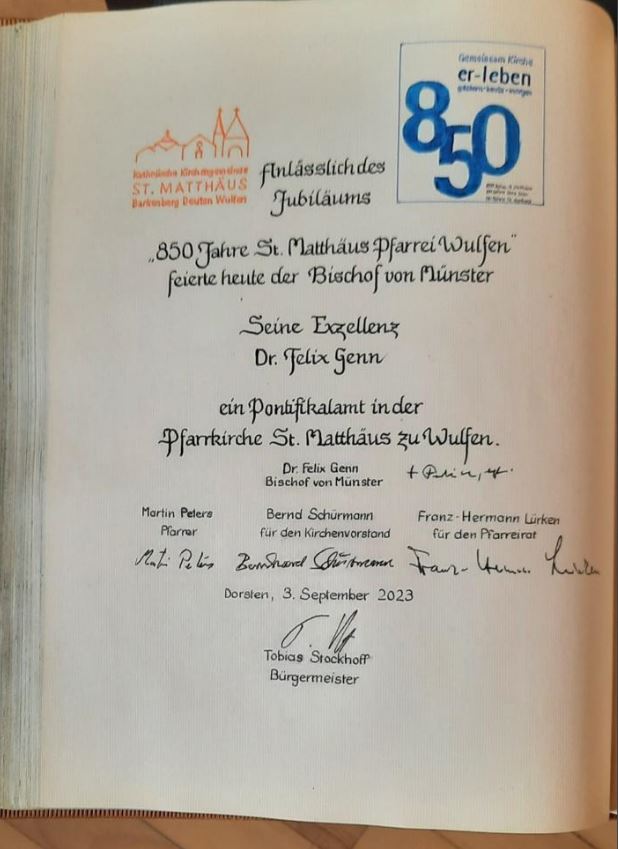 Gemeinsam Kirche
er-leben
gestern · heute · morgen
850
Katholische Kirchengemeinde
ST. MATTHÄUS
Barkenberg Deuten Wulfen
Anlässlich des
Jubiläums
„850 Jahre St. Matthäus Pfarrei Wulfen“
feierte heute der Bischof von Münster
Seine Exzellenz
Dr. Felix Genn
ein Pontifikalamt in der
Pfarrkirche St. Matthäus zu Wulfen.
Dr. Felix Genn
Bischof von Münster
Martin Peters
Pfarrer
Bernd Schürmann
für den Kirchenvorstand
Franz-Hermann Lürken
für den Pfarreirat
Martin Peters
Bernhard Schürmann
Franz-Hermann Lürken
Dorsten, 3. September 2023
Tobias Stockhoff
Bürgermeister